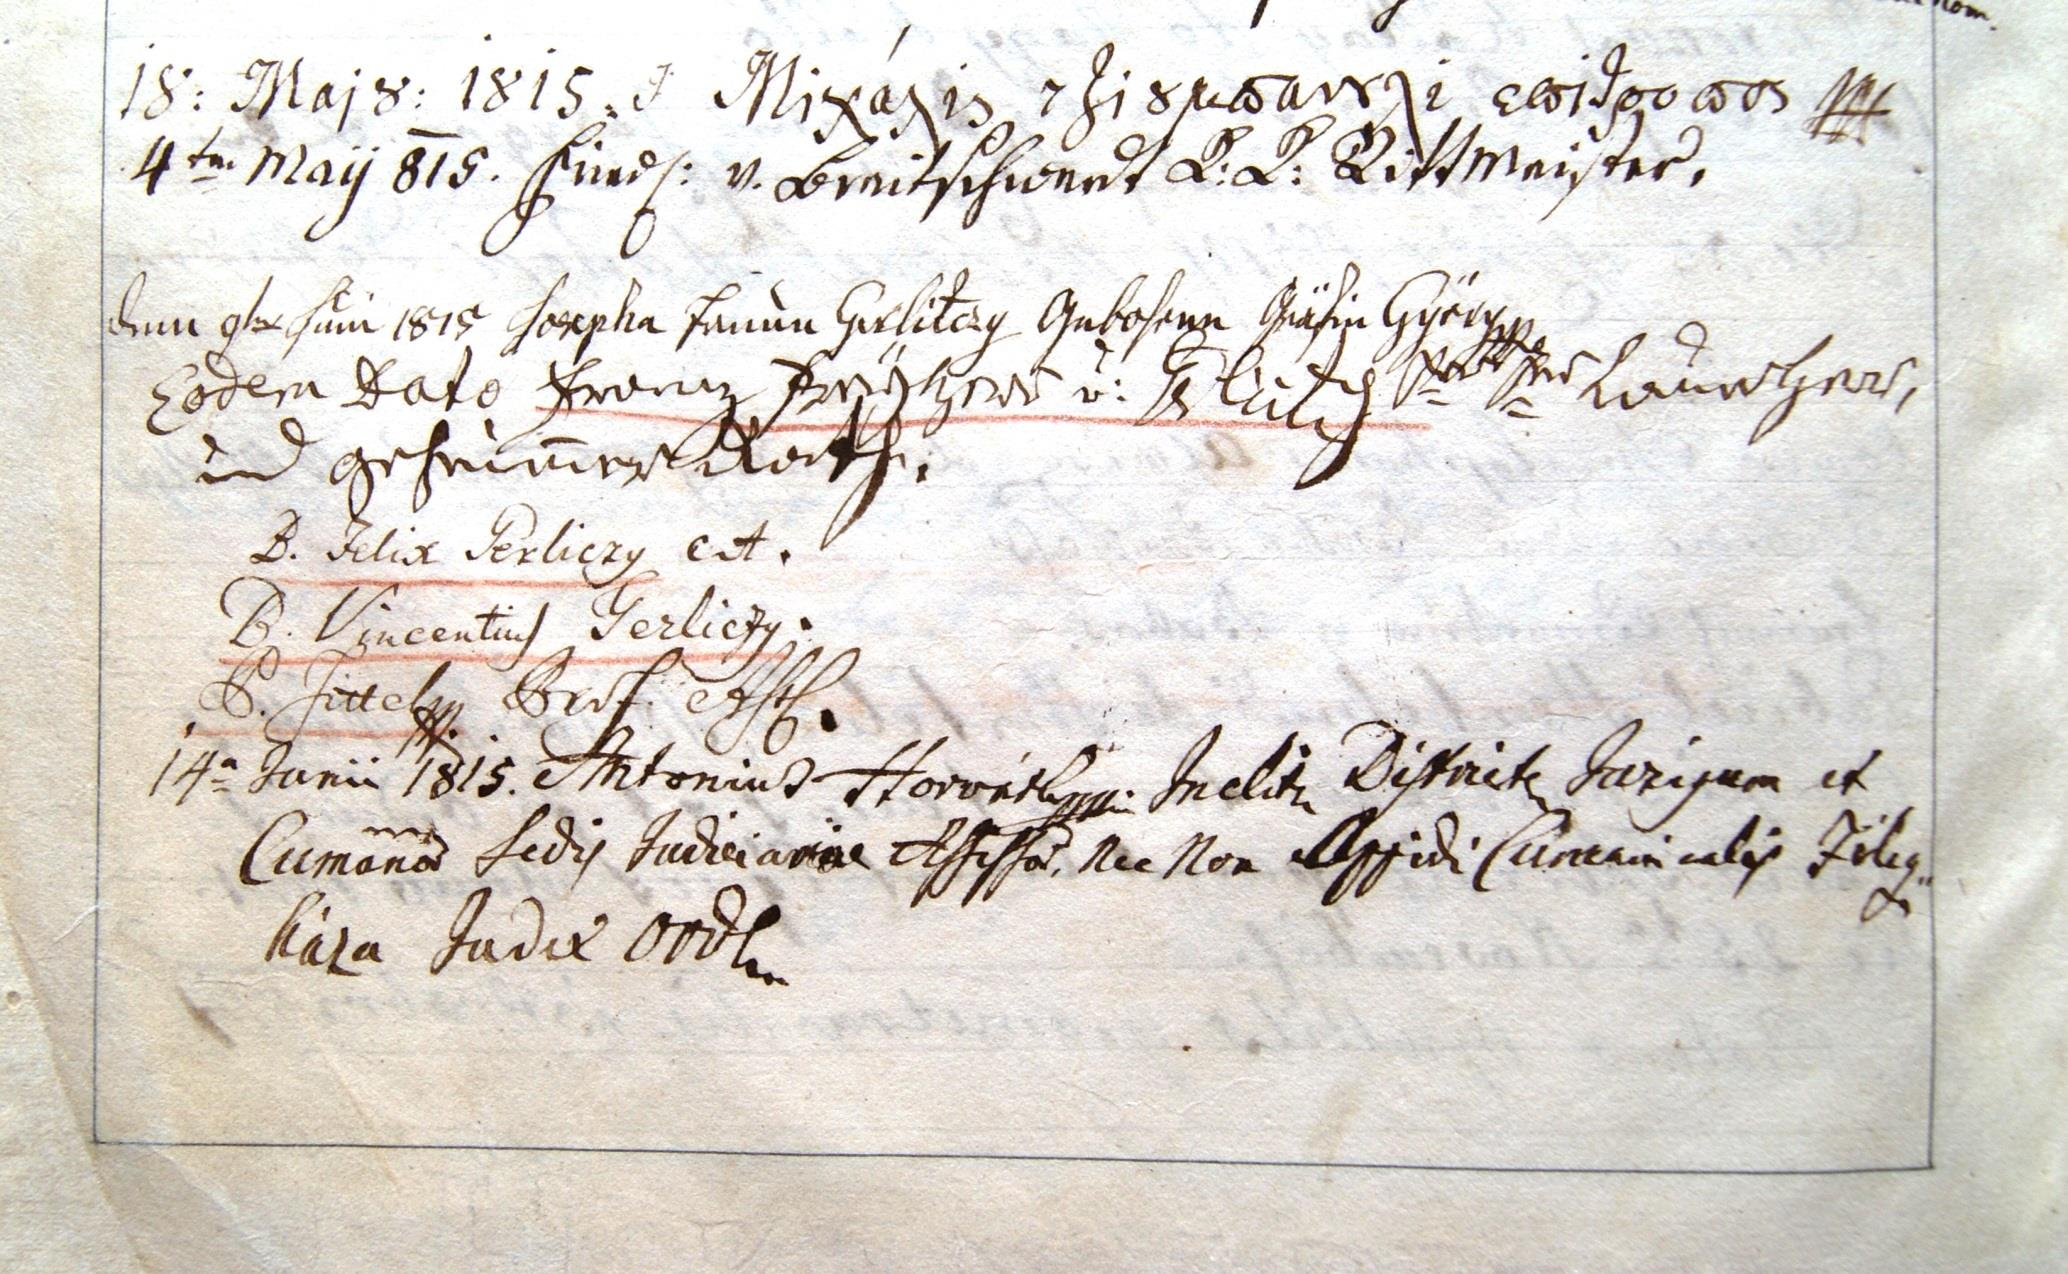 18: Maj 8: 1815. Μιχάλις τζιȣμπανȣλι επίτροπος
4tn Maÿ 815. v. Breitschwert K: K: Rittmeister,
Juni 1815 Josepha Freÿin Gerlitczy Gebohrne Gräfin Györy
Eodem Dato Franz Freÿherr v: Gerlitcy
und geheimer Rath.
B. Felix Gerliczy et.
B. Vincentius Gerliczy.
P. Zittel Prof.
14a Junii 1815. Antonius Horváth Inclitor Districtu Jazigum et
Cumanor Sedis Judiciariae Assessor, nec non Oppidi Cumanicalis Féleg„
háza Judex Ordl